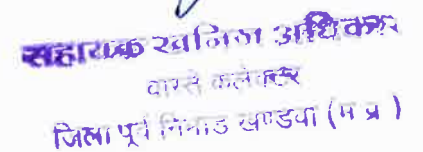 सहायक खनिज अधिकारी
वास्ते कलेक्टर
जिला पूर्व निमाड खण्डवा (म प्र )